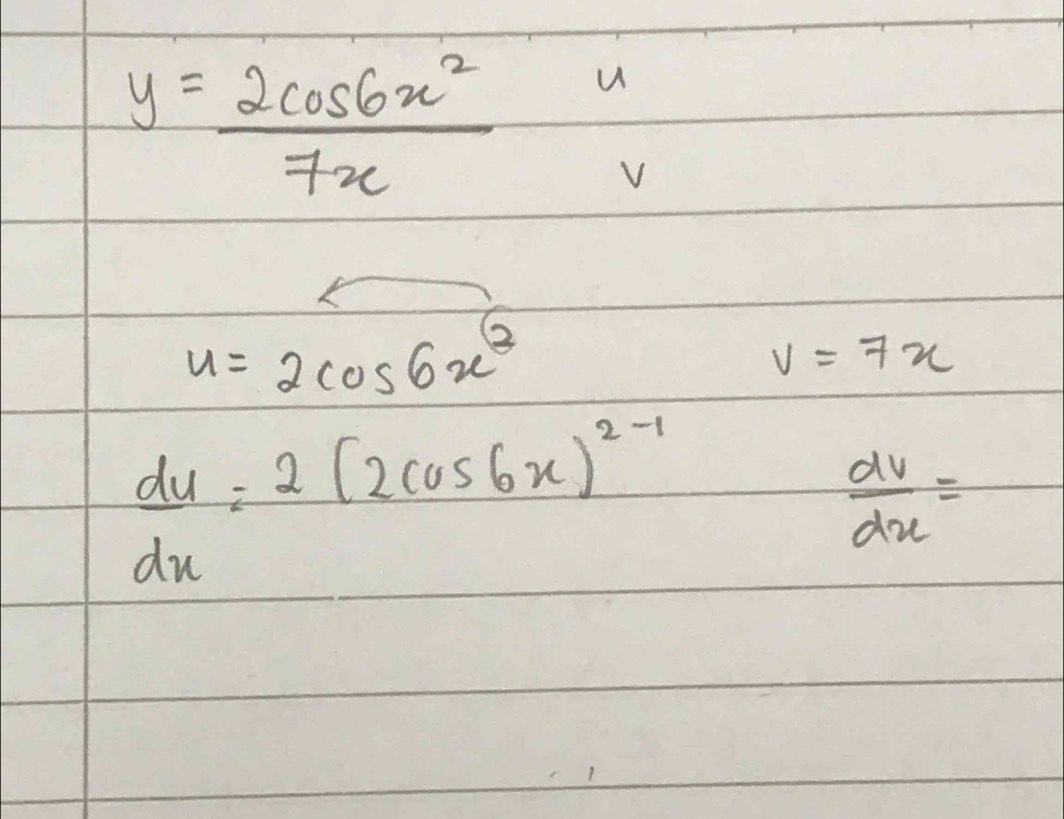 y = 2cos6x² u
7x v
u = 2cos6x² v = 7x
du = 2 (2cos6x)²⁻¹ dv =
dx dx